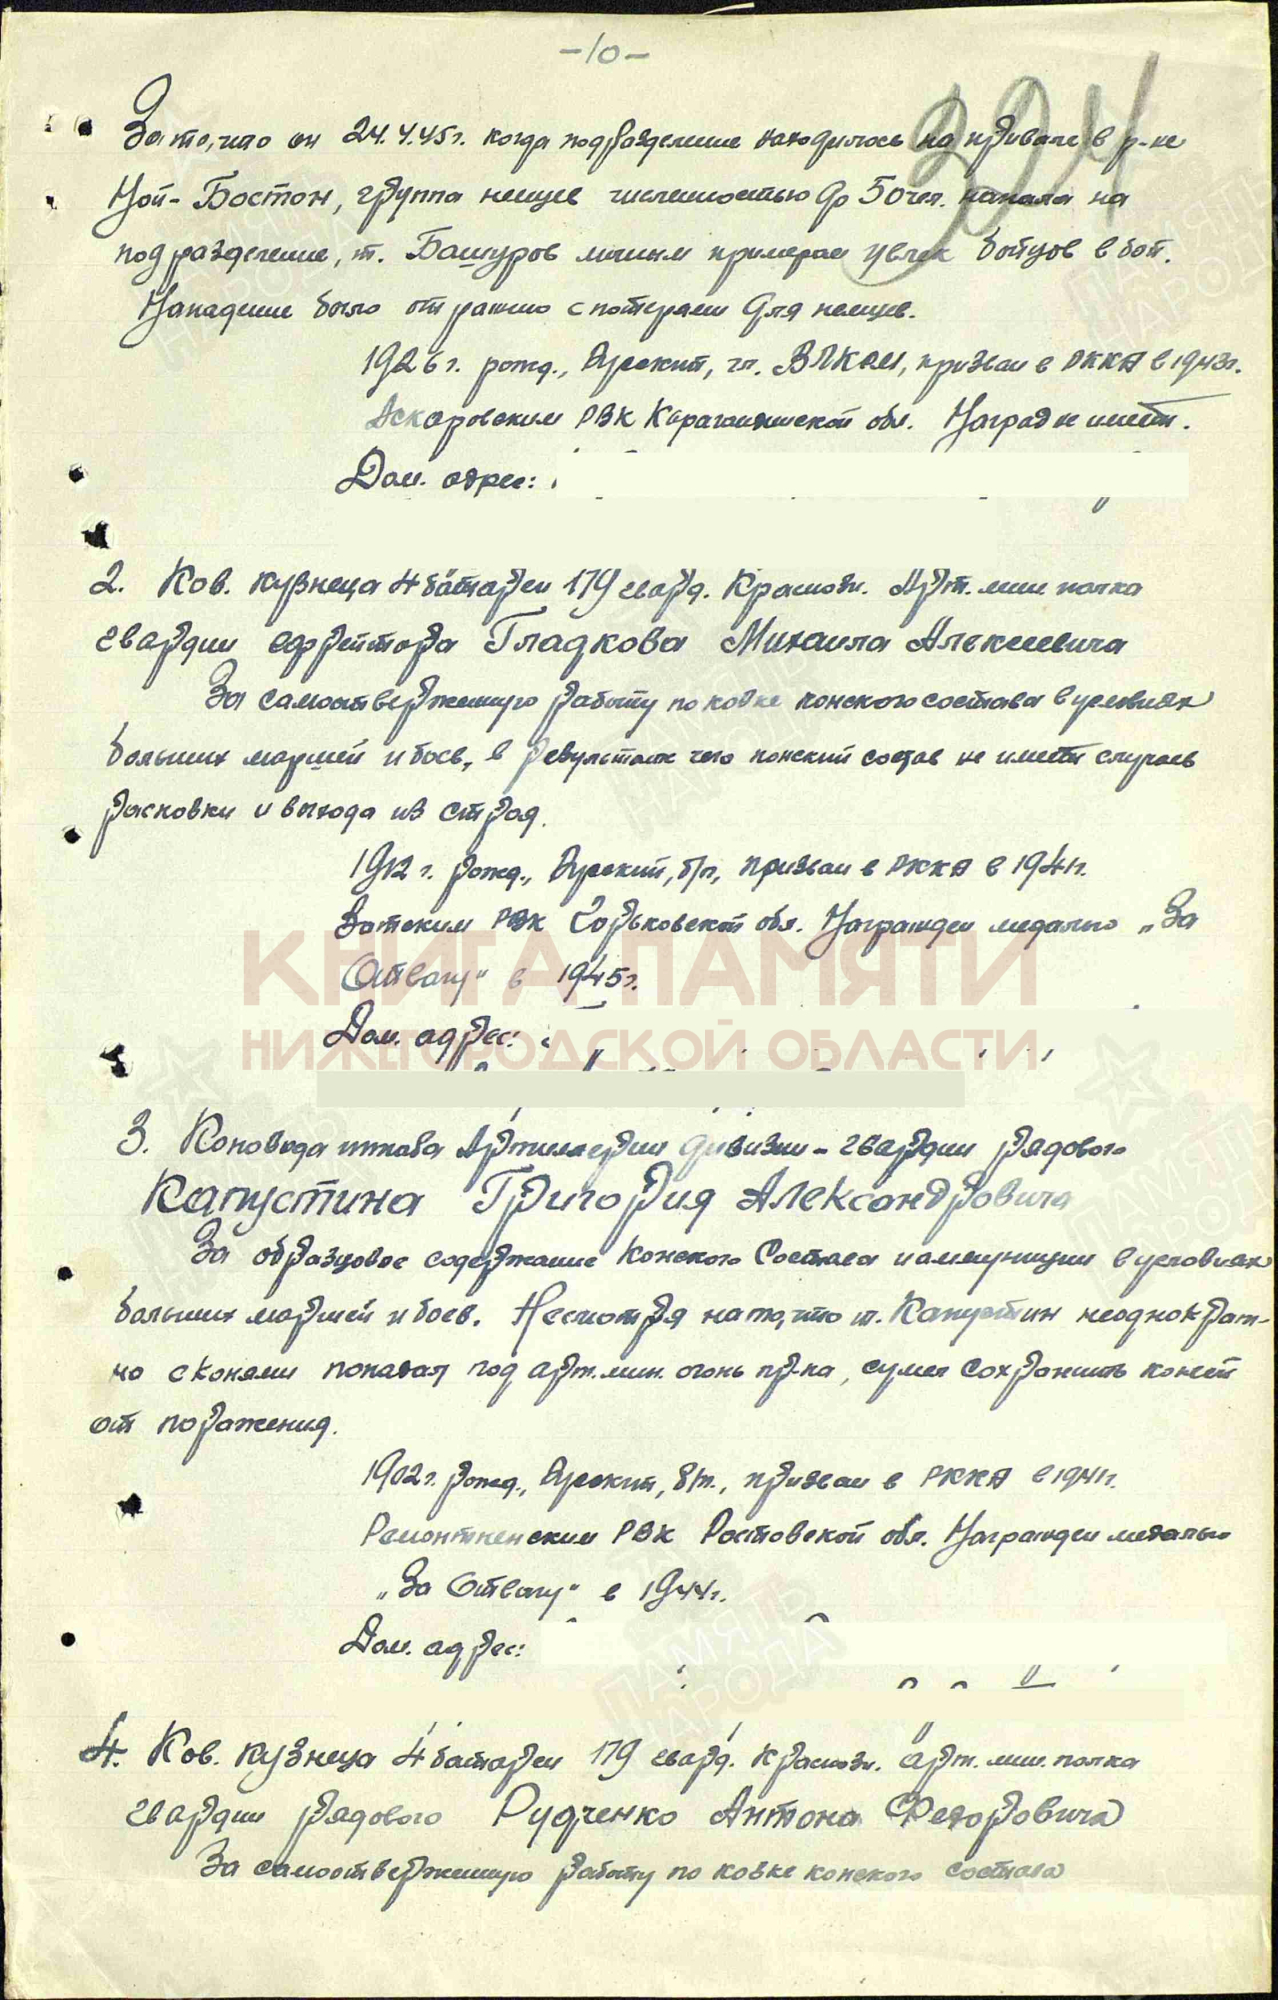 -10-
324
За то, что он 24.4.45г. когда подразделение находилось на привале в р-не
Ной-Бостон, группа немцев численностью до 50 чел. напала на
подразделение, т. Башуров личным примером увлек бойцов в бой.
Нападение было отражено с потерями для немцев.
1926 г. рожд., Русский, чл. ВЛКСМ, призван в РККА в 1943г.
Аскаровским РВК Карагандинской обл. Наград не имеет.
Дом. адрес:
2. Ков. кузнеца 4 батареи 179 гвард. Краснозн. Арт. мин. полка
гвардии ефрейтора Гладкова Михаила Алексеевича
За самоотверженную работу по ковке конского состава в условиях
больших маршей и боев, в результате чего конский состав не имеет случаев
расковки и выхода из строя.
1912 г. рожд., Русский, б/п, призван в РККА в 1941г.
РВК Горьковской обл. Награжден медалью „За
Отвагу" в 1945г.
Дом. адрес:
КНИГА ПАМЯТИ
НИЖЕГОРОДСКОЙ ОБЛАСТИ
3. Коновода штаба Артиллерии дивизии - гвардии рядового
Капустина Григория Александровича
За образцовое содержание Конского Состава и аммуниции в условиях
больших маршей и боев. Несмотря на то, что т. Капустин неоднократ-
но с конями попадал под арт. мин. огонь пр-ка, сумел сохранить коней
от поражения.
1902г. рожд., Русский, б/п., призван в РККА в 1941г.
Ремонтненским РВК Ростовской обл. Награжден медалью
„За Отвагу" в 1944г.
Дом. адрес:
4. Ков. кузнеца 4 батареи 179 гвард. Краснозн. арт. мин. полка
гвардии рядового Рудченко Антона Федоровича
За самоотверженную работу по ковке конского состава
ПАМЯТЬ
НАРОДА